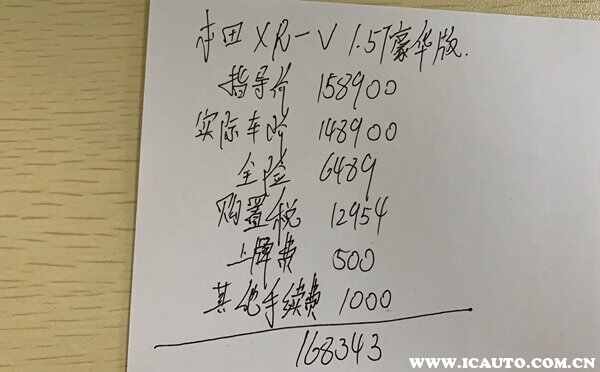 本田 XR-V 1.5T豪华版.
指导价 158900
实际车价 148900
全险 6489
购置税 12954
上牌费 500
其他手续费 1000
168343
WWW.ICAUTO.COM.CN